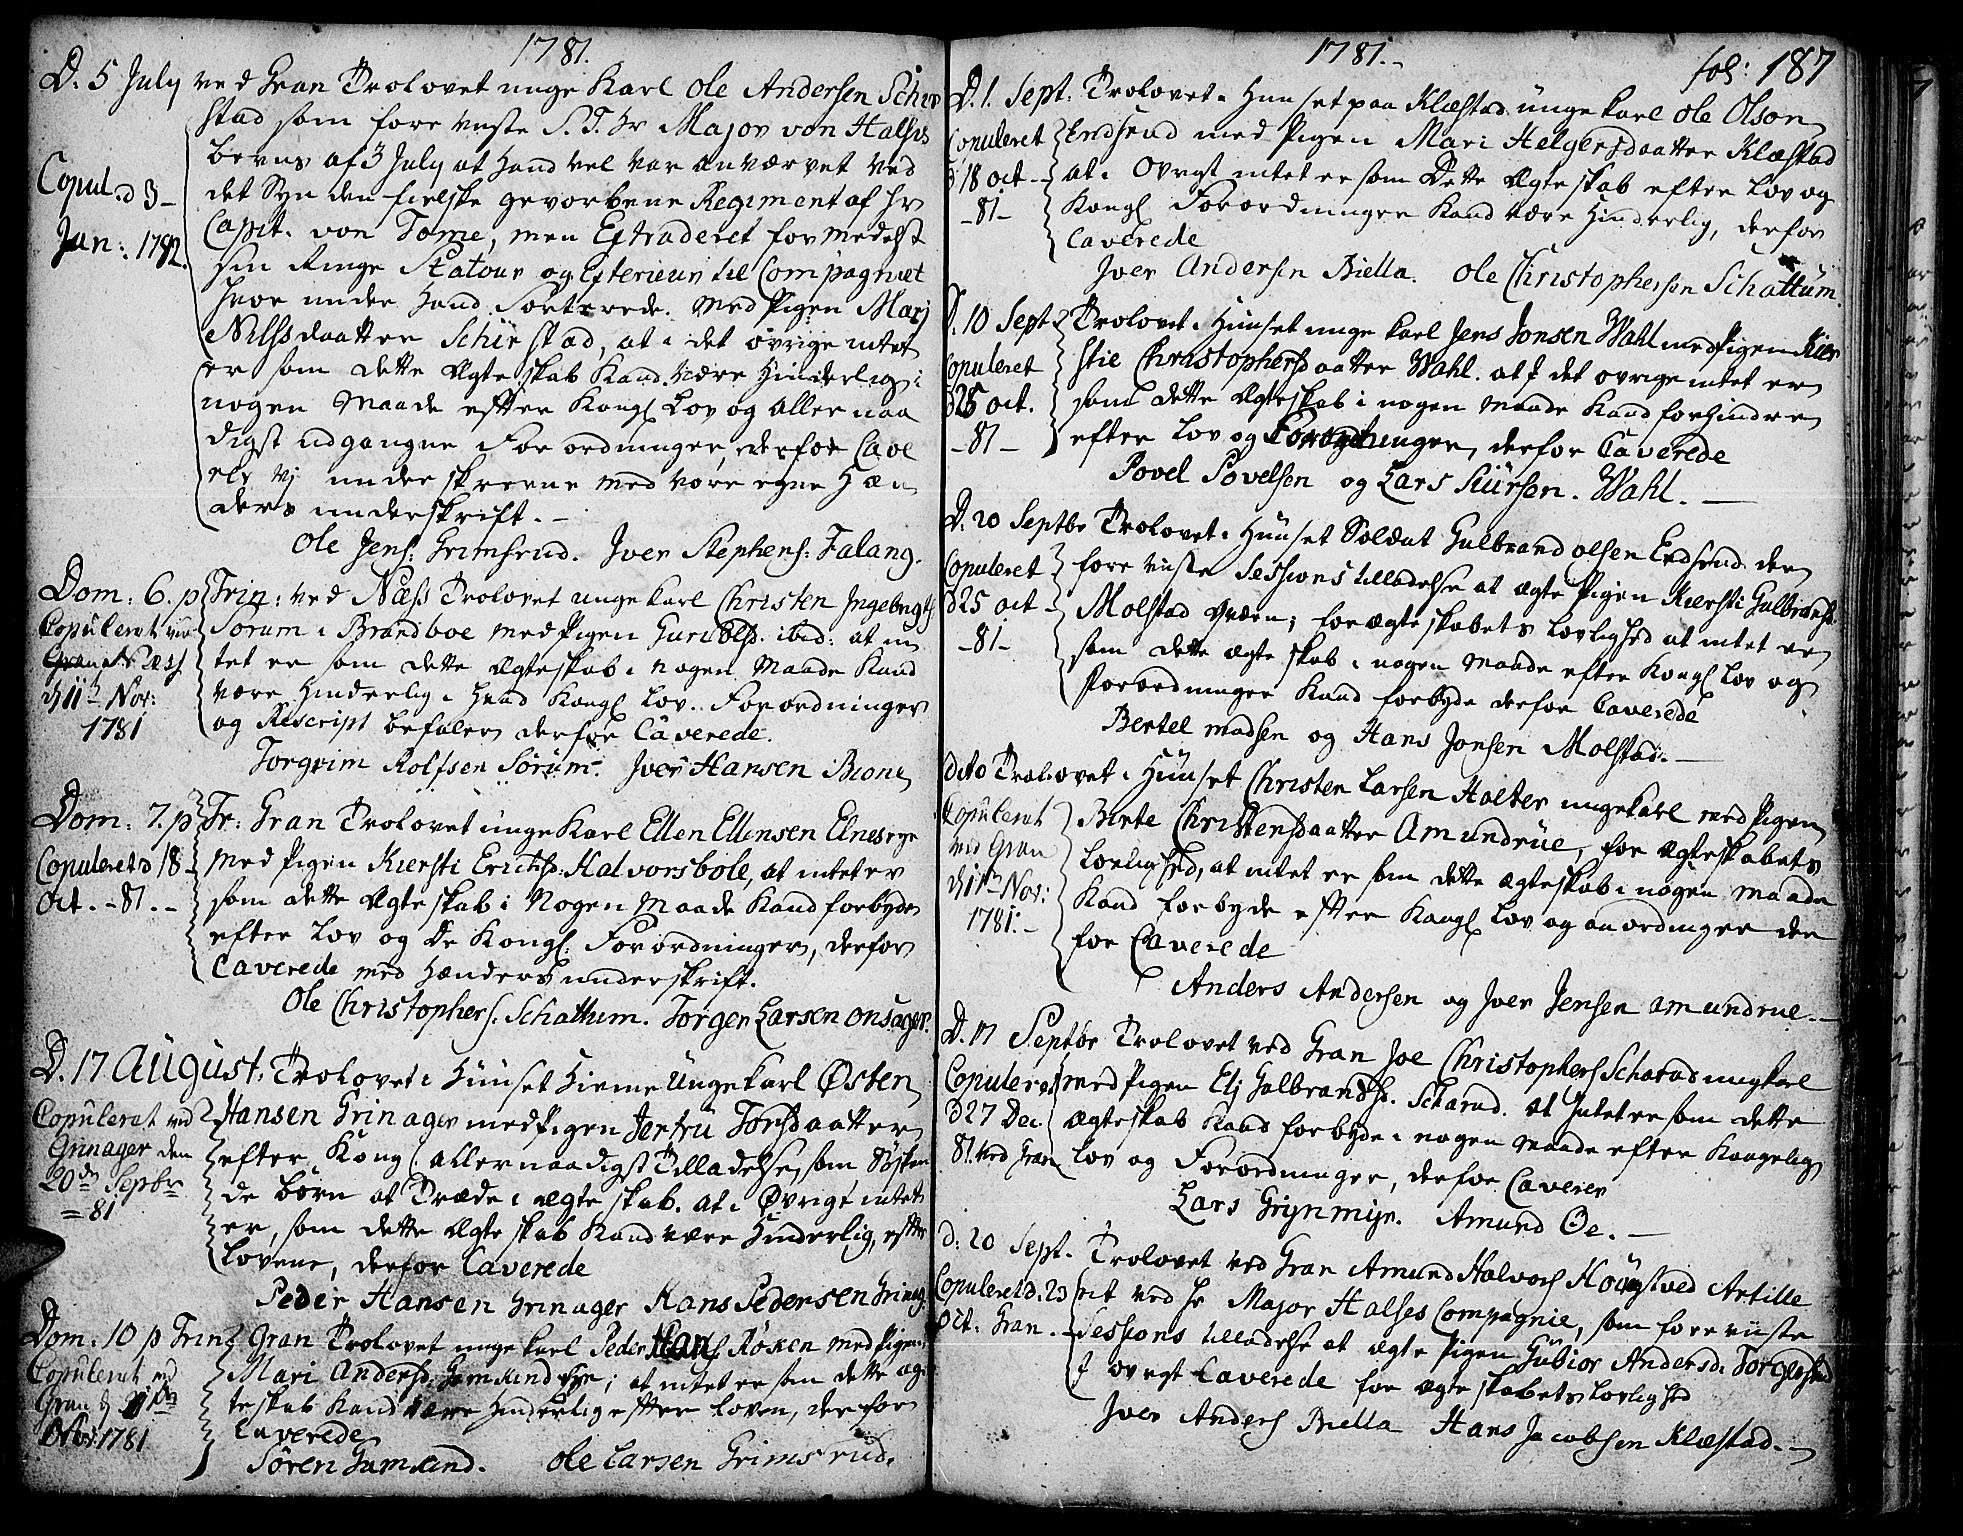 1781.
D. 5 July ved Gran Trolovet unge Karl Ole Andersen Schier
stad som foreviiste S. T. Hr Major von Halses
beviis af 3 July at hand vel var anværvet ved
det Syndenfielske gevorbene Regiment af Hr
Capit. von Tome, men Extraderet formedelst
sin Ringe Statour og Exterieur til Compagniet
hvor under hand Sorterede. med Pigen Mari
Nilsdaatter Schierstad, at i det øvrige intet
er som dette Ægteskab kand være Hinderlig i
nogen Maade efter Kongl Lov og allernaa
digst udgangne Forordninger, derfor Cave
rer vi underskrevne med vore egne Hæn
ders underskrift.
Copul. d 3
Jan: 1782.
Ole Jens: Grimsrud. Iver Stephens: Falang.
Dom: 6. p Trin: ved Næss Trolovet unge karl Christen Ingebrigts
Sorum i Brandboe med Pigen Guri Olsd. ibid: at in
tet er som dette Ægteskab i nogen Maade kand
være Hinderlig i hvad Kongl Lov. Forordninger
og Rescript befaler derfor Caverede.
Copuleret ved
Næss
d 11te Nov:
1781
Torgrim Rolfsen Sørum. Iver Hansen Bione
Dom: 7. p Tr: Gran Trolovet unge Karl Ellen Ellensen Elnesrye
med Pigen Kiersti Erichsd: Halvorsbole, at intet er
som dette Ægteskab i Nogen Maade kand forbyde
efter Lov og De Kongl: Forordninger, derfor
Caverede med hænders underskrift.
Copuleret d 18
Oct. - 81. -
Ole Christophers. Schattum. Torger Larsen onsager.
D. 17 August. Trolovet i Huuset Hieme Unge karl Østen
Hansen Grinager med Pigen Jertru Torsdaatter
efter Kongl. allernaadigst Tilladelse, som Sødsken
de børn at Træde i Ægteskab. at i Øvrigt intet
er, som dette Ægteskab kand være Hinderlig, efter
Lovene, derfor Caverede
Copuleret ved
Grinager den
20de Septbr
= 81
Peder Hansen Grinager Hans Pedersen Grinag.
Dom: 10 p Trin: Gran Trolovet unge karl Peder Hans Røken med Pigen
Mari Andersd: ; at intet er som dette æg
teskab kand være Hinderlig efter loven, derfor
Caverede
Copuleret ved
Gran d
Nov: 1781
Søren Gumlund. Ole Larsen Grimsrud.
1781.- fol: 187
D. 1. Sept. Trolovet i Huuset paa Klæstad unge karl Ole Olson
Endsrud med Pigen Mari Helgersdaatter Klæstad
at i Øvrigt intet er som Dette Ægteskab efter Lov og
Kongl Forordninger kand være Hinderlig, derfor
Caverede
Copuleret
d 18 oct -
-81-
Iver Andersen Biella. Ole Christophersen Schattum.
D. 10 Sept Trolovet i Huuset unge karl Jens Jonsen Wahl med Pigen Kier
stie Christophersdaatter Wahl. at i det øvrige intet er
som dette Ægteskab i nogen Maade kand forhindre
efter Lov og Forordninger, derfor Caverede
Copuleret
d 25 oct.
-81-
Povel Povelsen og Lars Siursen. Wahl.
D. 20 Septbr Trolovet i Huuset Soldat Gulbrand olsen Endsrud der
foreviiste Sessions tilladelse at ægte Pigen Kiersti Gulbrandsd.
Molstad ; for ægteskabets lovlighed at intet er
som dette ægteskab i nogen Maade efter Kongl Lov og
Forordninger kand forbyde derfor Caverede
Copuleret
d 25 oct -
-81-
Bertel madsen og Hans Jonsen Molstad.
dito Trolovet i Huuset Christen Larsen Halter ungekarl med Pigen
Berte Christensdaatter Amundrue, for ægteskabets
Lovlighed, at intet er som dette ægteskab i nogen Maade
kand forbyde efter Kongl Lov og anordninger der
for Caverede
Copuleret
ved Gran
d 11te Nov:
1781.-
Anders Andersen og Iver Jensen amundrue.-
D. 17 Septbr Trolovet ved Gran Joe Christophers Scharud ungkarl
med Pigen Elj Gulbrandsd. Scharud. at Intet er som dette
ægteskab kand forbyde i nogen Maade efter Kongelig
Lov og Forordninger, derfor Caverer
Copuleret
d 27 Dec.
81. ved Gran
Lars Grijnmijr. Amund Oe.
d. 20 Sept. Trolovet ved Gran Amund Halvors Høigstved Artille
rit ved Hr Major Halses Compagnie, som foreviiste
Sessions tilladelse at ægte Pigen Gubior Andersd:
I øvrigt Caverede for ægteskabets lovlighed
Copuleret d. 23
Oct: Gran. -
Iver Anders Biella Hans Jacobsen Klæstad.